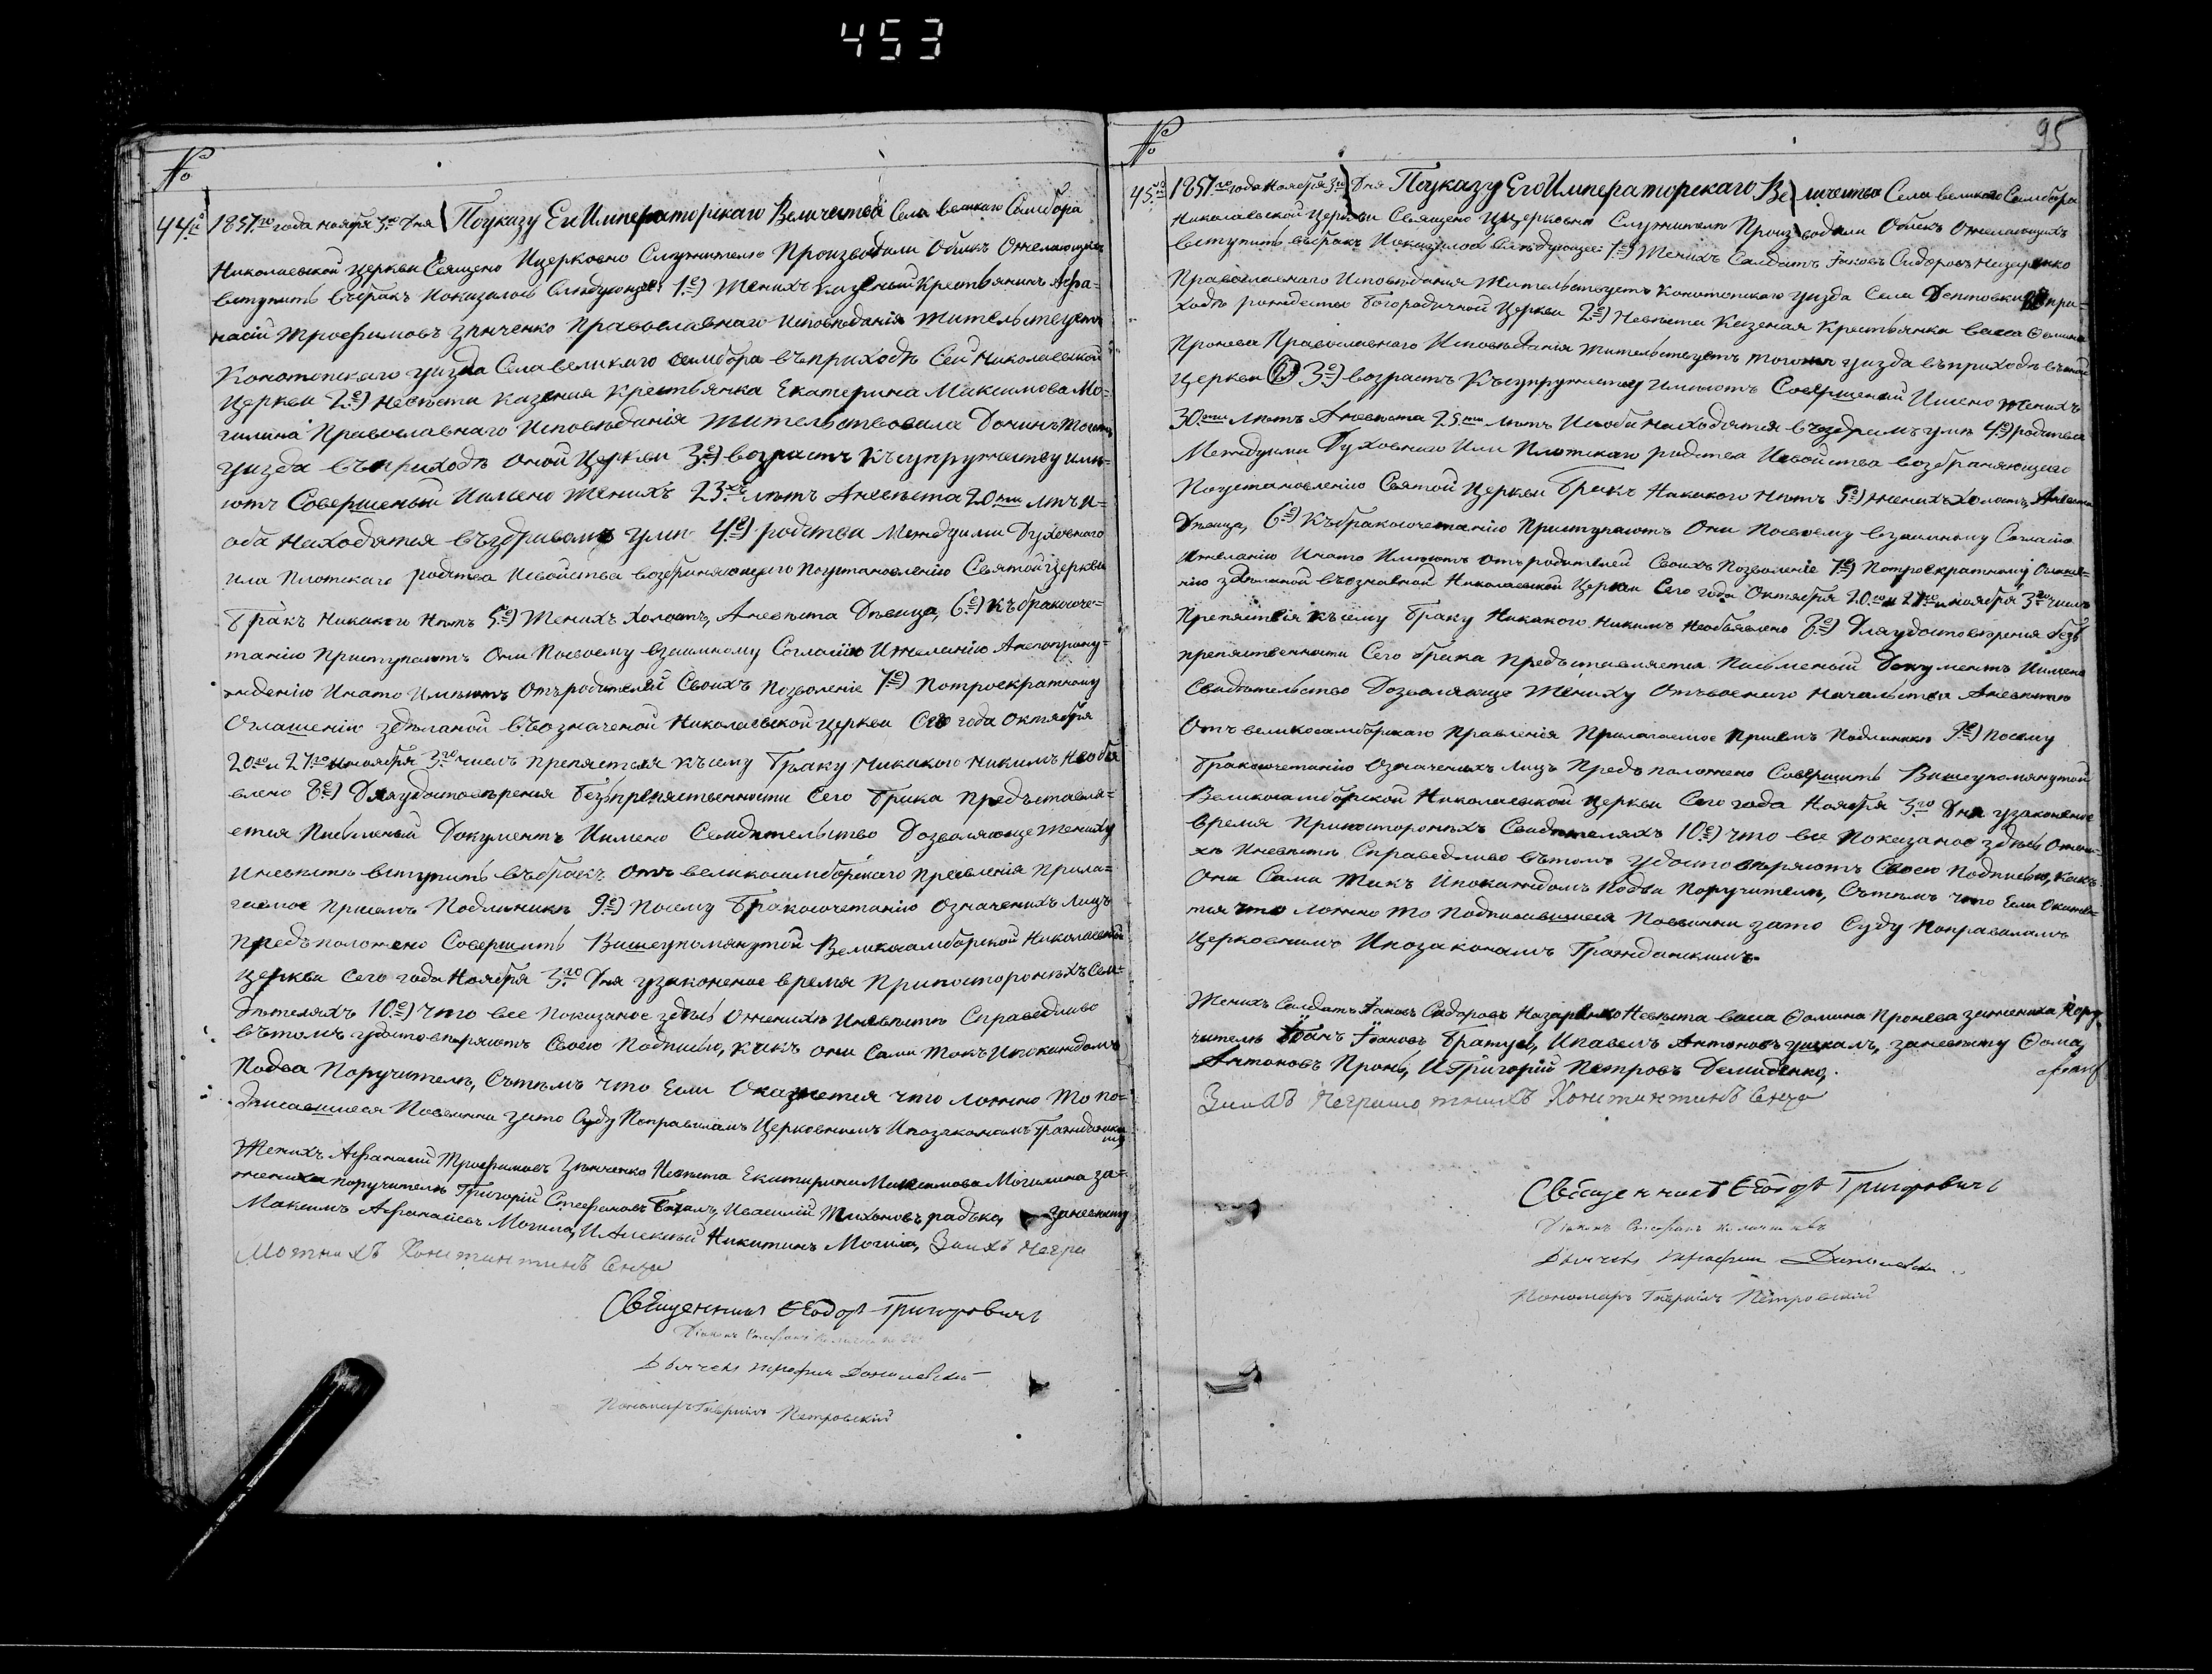 453
№
44е
1857го года Ноября 3го Дня Поуказу Его Императорскаго Величества Села великого Самбора
Николаевской Церкви Священо Ицерковно Служители Производили Обискъ Ожелающихъ
вступить въбракъ Показалось Слѣдующее: 1е) Женихъ Казеный Крестьянинъ Афа-
насій Трофимовъ Зѣнченко Православнаго Исповѣданія Жительствуетъ
Конотопскаго уизда Села великаго Самбора въприходѣ Сей Николаевской
Церкви 2е) Невѣста Казеная Крестьянка Екатерина Максимова Мо-
гилина Православнаго Исповѣданія Жительствовала Донинѣ тогожъ
уизда въприходѣ оной Церкви 3е) возрастъ Ксупружеству имѣ-
ютъ Совершеный Имено Женихъ 23хъ лѣтъ Аневѣста 20ти лѣтъ И-
оба Находятся въздравомъ умѣ 4е) родства Междуими Духовного
или Плотскаго родства Исвойства возбраняющаго Поустановленію Святой Церкви
Бракъ Никакого Нѣтъ 5е) Женихъ Холостъ, Аневѣста Дѣвица, 6е) Къбракосоче-
танію Приступаютъ Они Посвоему взаимному Согласію Ижеланію Анепопрону-
жденію Инато Имѣютъ Отъродителей Своихъ Позволеніе 7е) Потроекратному
Оглашенію здѣланой въозначеной Николаевской Церкви Сего года Октября
20го и 27го Иноября 3го числъ Препятствія Ксему Браку Никакого Никимъ Необъя
влено 8е) Дляудостовѣренія безъпрепятственности Сего брака Предъставля-
ется Писменый Документъ Имено Свидѣтельство Дозволяюще Жениху
Иневѣстѣ вступить въбракъ Отъ великосамборскаго Правленія Прила-
гаемое Присемъ Подлиникѣ 9е) Посему Бракосочетанію Означеныхъ Лицъ
Предъположено Совершить Вишеупомянутой Великосамборской Николаевской
Церкви Сего года Ноября 3го Дня узаконеное время Припостороныхъ Сви-
дѣтеляхъ 10е) что все Показаное здѣсь Оженихѣ Иневѣстѣ Справедливо
вътомъ удостовѣряютъ Своею Подписью, какъ они Сами Такъ Ипокаждомъ
Подва Поручителѣ, Сътѣмъ что Если Окажется что ложно То По-
дписавшиеся Повинни зато Суду Поправиламъ Церковнымъ Ипозаконамъ Гражданским
Женихъ Афанасій Трофимовъ Зѣнченко Невѣста Екатирина Максимова Могилина за-
жениха Поручителѣ Григорій Стефановъ Ивасилій Тихоновъ радька, заневѣсту
Максимъ Афанасіевъ Могила, ИАлексѣй Никитинъ Могила, Заихъ Негра
Мотнихъ Константинъ Сенча
Священникъ Феодоръ Григоровичъ
Діаконъ Стефанъ
Дьячекъ Трофим
Пономарь Гавріилъ Петровскій
95
№
45е
1857го года Ноября 3го Дня Поуказу Его Императорскаго Величества Села великого Самбора
Николаевской Церкви Священо Ицерковно Служители Производили Обискъ Ожелающихъ
вступить въбракъ Показалось Слѣдующее: 1е) Женихъ Салдатъ Іаковъ Сидоровъ Назаренко
Православнаго Исповѣданія Жительствуетъ Конотопскаго уизда Села Дептовки при-
ходѣ рождества Богородичной Церкви 2е) Невѣста Казеная Крестьянка васса Фомина
Пронева Православнаго Исповѣданія Жительствуетъ тогожъ уизда въприходѣ
Церкви 3е) возрастъ Късупружеству имѣютъ Совершеный Имено Женихъ
30ти лѣтъ Аневѣста 25ти лѣтъ Иоба Находятся въздравомъ умѣ 4е) родства
Междуими Духовного Или Плотскаго родства Исвойства возбраняющаго
Поустановленію Святой Церкви Бракъ Никакого Нѣтъ 5е) Женихъ Холостъ, Аневѣста
Дѣвица, 6е) Къбракосочетанію Приступаютъ Они Посвоему взаимному Согласію
Ижеланію Инато Имѣютъ Отъродителей Своихъ Позволеніе 7е) Потроекратному Оглаше-
нію здѣланой въозначеной Николаевской Церкви Сего года Октября 20го и 27го Иноября 3го числъ
Препятствія Ксему Браку Никакого Никимъ Необъявлено 8е) Дляудостовѣренія безъ
препятственности Сего брака Предъставляется Писменый Документъ Имено
Свидѣтельство Дозволяюще Жениху Отъвоеного Начальства Аневѣстѣ
Отъ великосамборскаго Правленія Прилагаемое Присемъ Подлиникѣ 9е) Посему
Бракосочетанію Означеныхъ Лицъ Предъположено Совершить Вишеупомянутой
Великосамборской Николаевской Церкви Сего года Ноября 3го Дня узаконеное
время Припостороныхъ Свидѣтеляхъ 10е) что все Показаное здѣсь Ожени-
хѣ Иневѣстѣ Справедливо вътомъ удостовѣряютъ Своею Подписью, какъ
Они Сами Такъ Ипокаждомъ Подва Поручителѣ, Сътѣмъ что Если Окаже-
тся что ложно То Подписавшиеся Повинни зато Суду Поправиламъ
Церковнымъ Ипозаконамъ Гражданскимъ.
Женихъ Салдатъ Іаковъ Сидоровъ Назаренко Невѣста васса Фомина Пронева зажениха Пору
чителѣ Іоанъ Іоановъ Ипавелъ Антоновъ заневѣсту Фома
Антоновъ Пронь, ИГригорій Петровъ Демиденко,
Заихъ Неграмотнихъ Константинъ Сенча
Священникъ Феодоръ Григоровичъ
Діаконъ Стефанъ
Дьячекъ Трофим
Пономарь Гавріилъ Петровскій